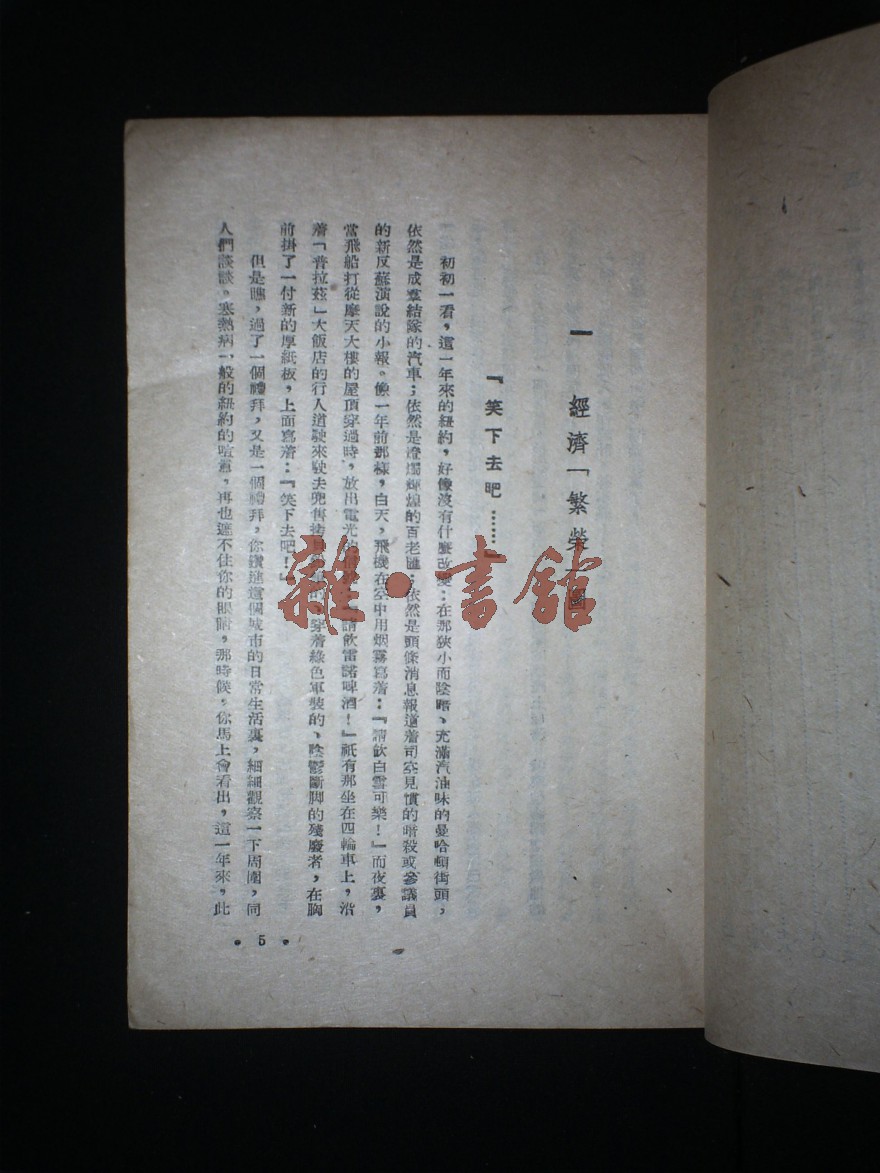 一 經濟「繁榮」圖
『笑下去吧……』
初初一看，這一年來的紐約，好像沒有什麼改變：在那狹小而陰暗、充滿汽油味的曼哈頓街頭，
依然是成羣結隊的汽車；依然是燈燭輝煌的百老匯；依然是頭條消息報道着司空見慣的暗殺或參議員
的新反蘇演說的小報。像一年前那樣，白天，飛機在空中用烟霧寫着：『請飲白雪可樂！』而夜裏，
當飛船打從摩天大樓的屋頂穿過時，放出電光的 請飲雷諾啤酒！』祇有那坐在四輪車上，沿
着「普拉茲」大飯店的行人道駛來駛去兜售 的、穿着綠色軍裝的、陰鬱斷脚的殘廢者，在胸
前掛了一付新的厚紙板，上面寫着：『笑下去吧！』
但是瞧，過了一個禮拜，又是一個禮拜，你鑽進這個城市的日常生活裏，細細觀察一下周圍，同
人們談談。寒熱病一般的紐約的喧囂，再也遮不住你的眼睛，那時候，你馬上會看出，這一年來，此
• 5 •
雜·書館